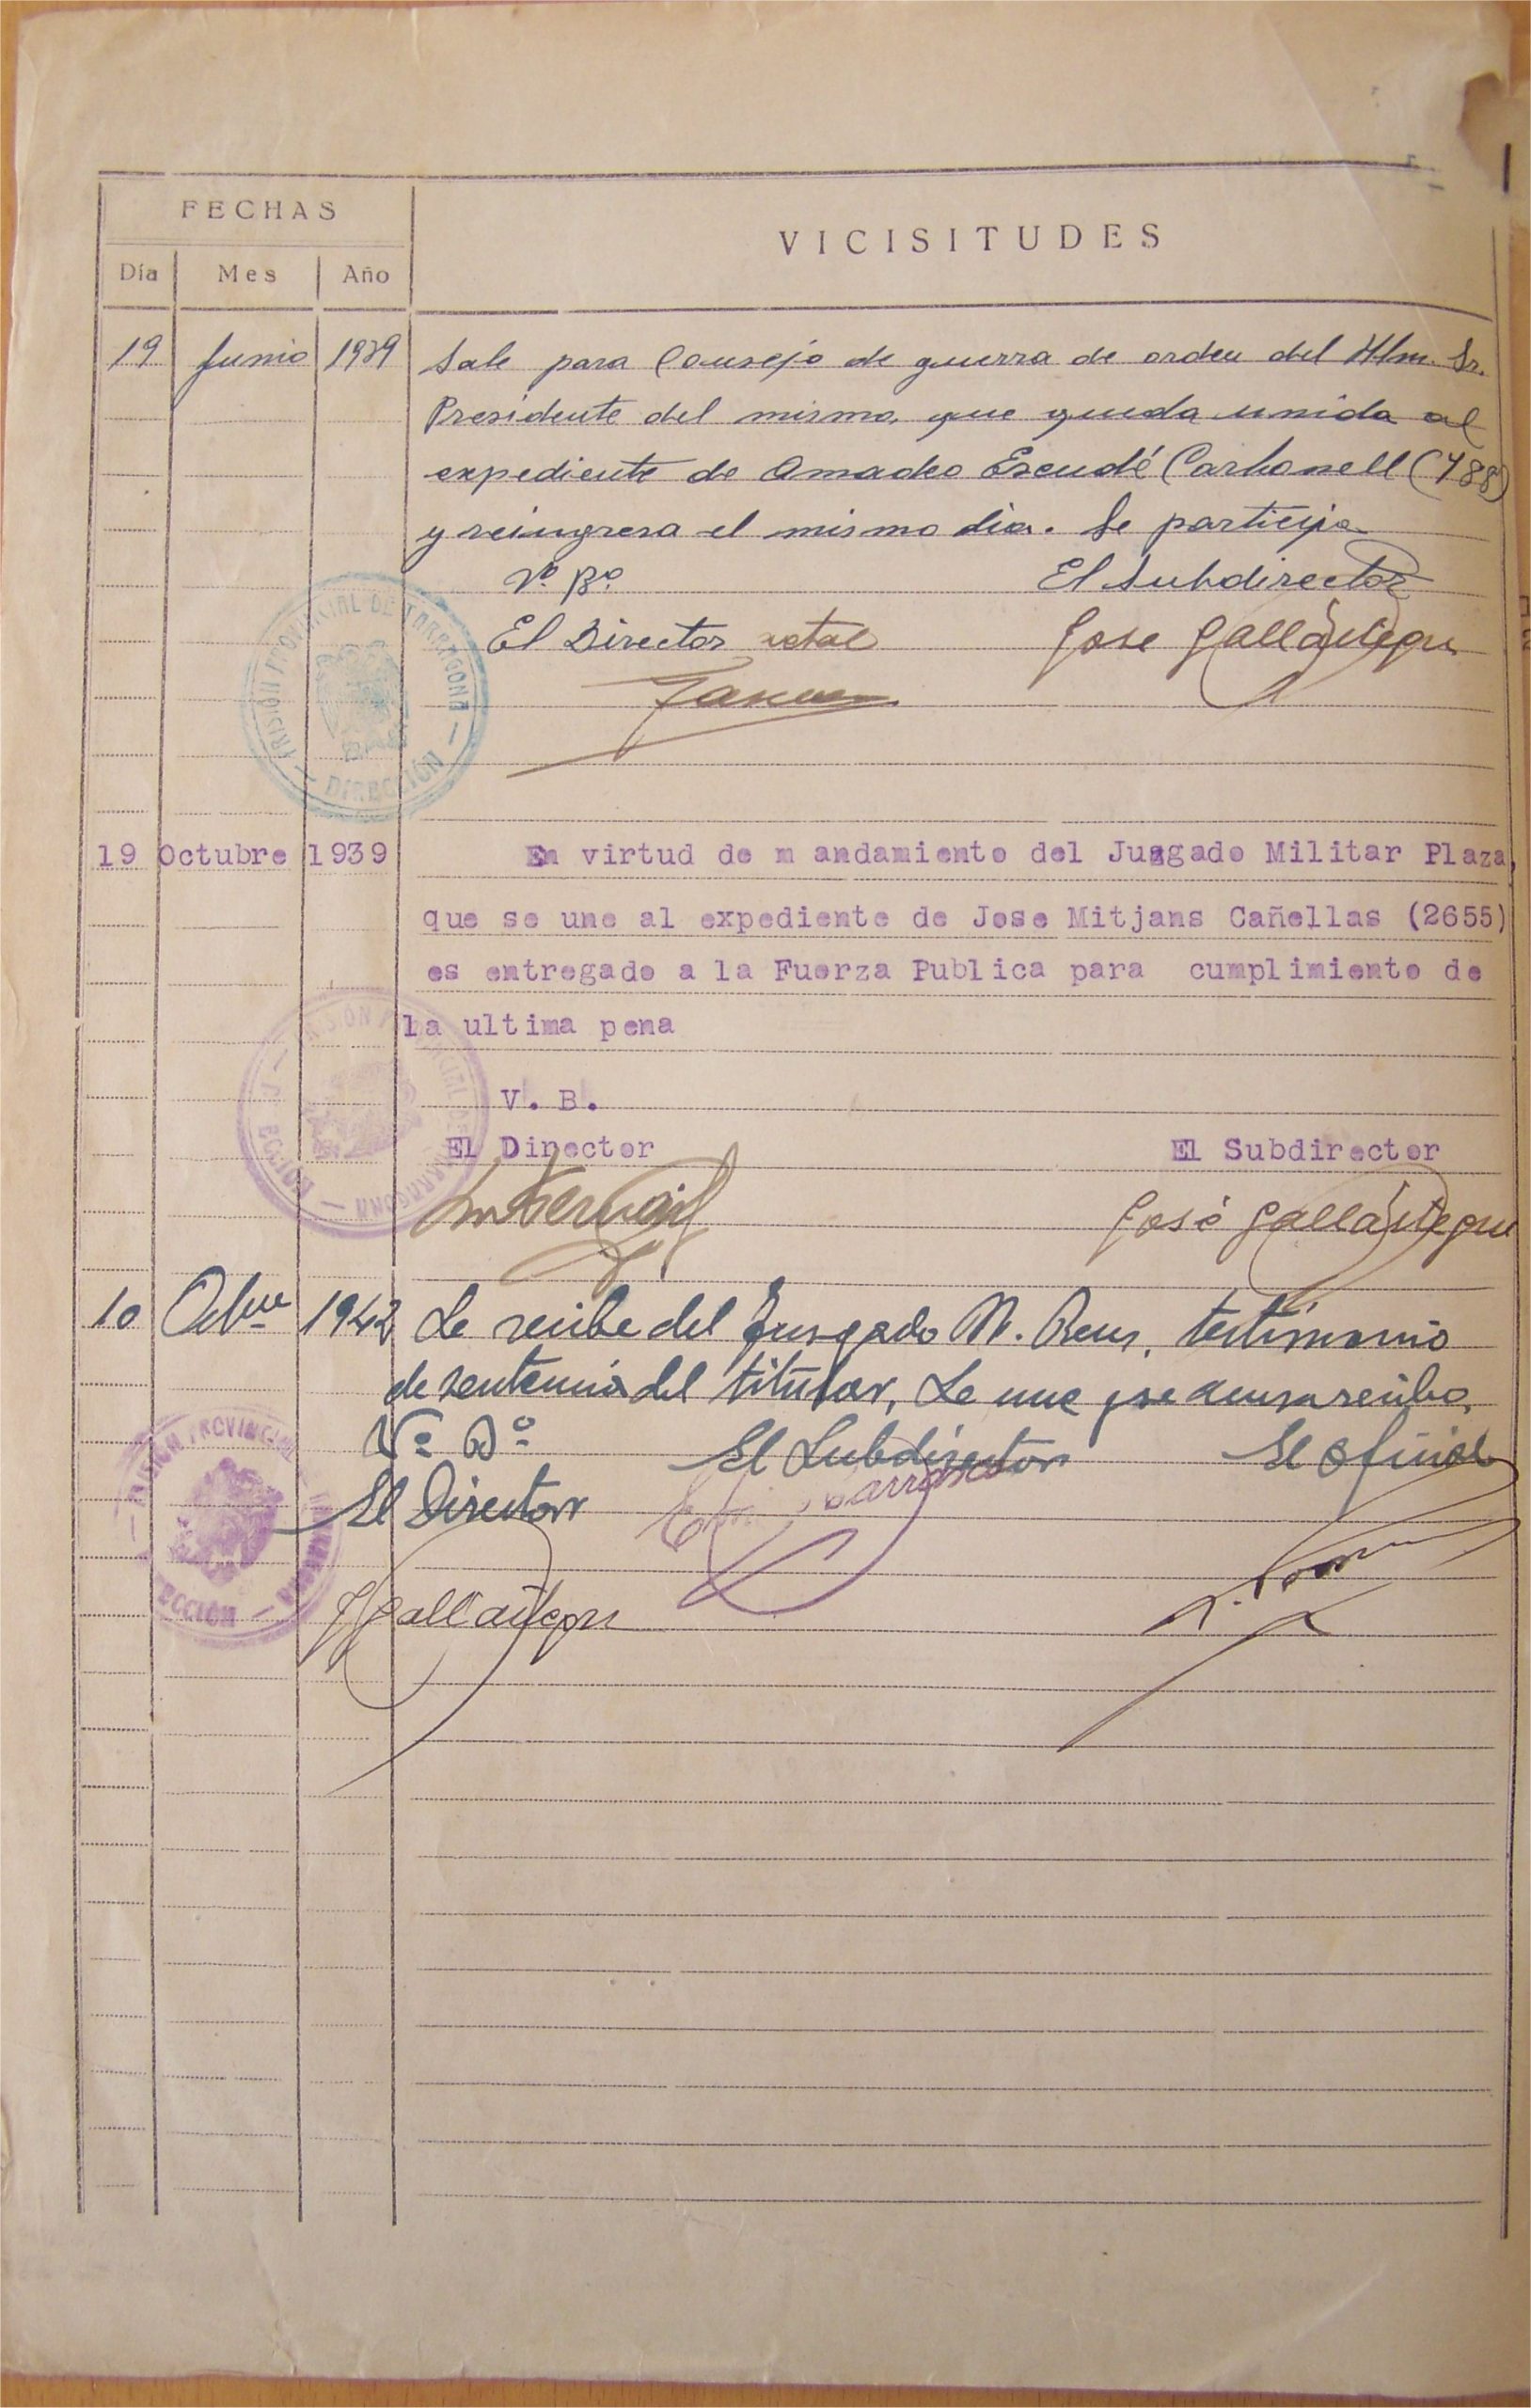 FECHAS
VICISITUDES
Día Mes Año
19 Junio 1939 Sale para Consejo de guerra de orden del Iltm. Sr.
Presidente del mismo, que queda unida al
expediente de Amadeo Escudé Carbonell (788)
y reingresa el mismo dia. Se participa
Vº. Bº. El Subdirector
El Director actal Jose Gallástegui
PRISIÓN PROVINCIAL DE TARRAGONA
— DIRECCIÓN —
19 Octubre 1939 En virtud de m andamiento del Juzgado Militar Plaza,
que se une al expediente de Jose Mitjans Cañellas (2655)
es entregado a la Fuerza Publica para cumplimiento de
la ultima pena
V. B.
El Director El Subdirector
José Gallástegui
10 Octbre 1942 Se recibe del Juzgado M. Reus, testimonio
de sentencia del titular, Se une y se acusa recibo.
Vº Bº El Subdirector El Oficial
El Director Carrasco
J Gallástegui